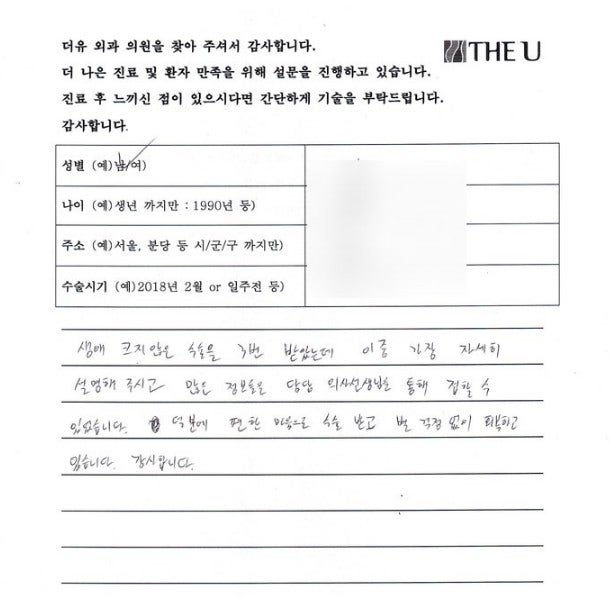 더유 외과 의원을 찾아 주셔서 감사합니다.
THE U
더 나은 진료 및 환자 만족을 위해 설문을 진행하고 있습니다.
진료 후 느끼신 점이 있으시다면 간단하게 기술을 부탁드립니다.
감사합니다.
성별 (예)남/여)
나이 (예)생년 까지만 : 1990년 등)
주소 (예)서울, 분당 등 시/군/구 까지만)
수술시기 (예)2018년 2월 or 일주전 등)
생애 크지않은 수술을 3번 받았는데 이중 가장 자세히
설명해 주시고 많은 정보들을 담당 의사선생님을 통해 접할 수
있었습니다. 덕분에 편한 마음으로 수술 받고 별 걱정 없이 회복하고
있습니다. 감사합니다.